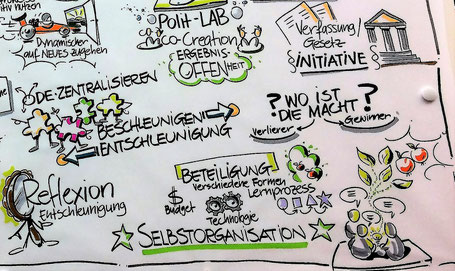 nutzen
Dynamischer
auf NEUES zugehen
Polit-LAB
Co-Creation
ERGEBNIS
OFFENHEIT
Verfassung/
Gesetz
§INITIATIVE§
DE-ZENTRALISIEREN
BESCHLEUNIGEN
ENTSCHLEUNIGUNG
? WO IST
DIE MACHT?
Verlierer
Gewinner
Reflexion
Entschleunigung
BETEILIGUNG
Verschiedene Formen
Lernprozess
$
Budget
Technologie
SELBSTORGANISATION